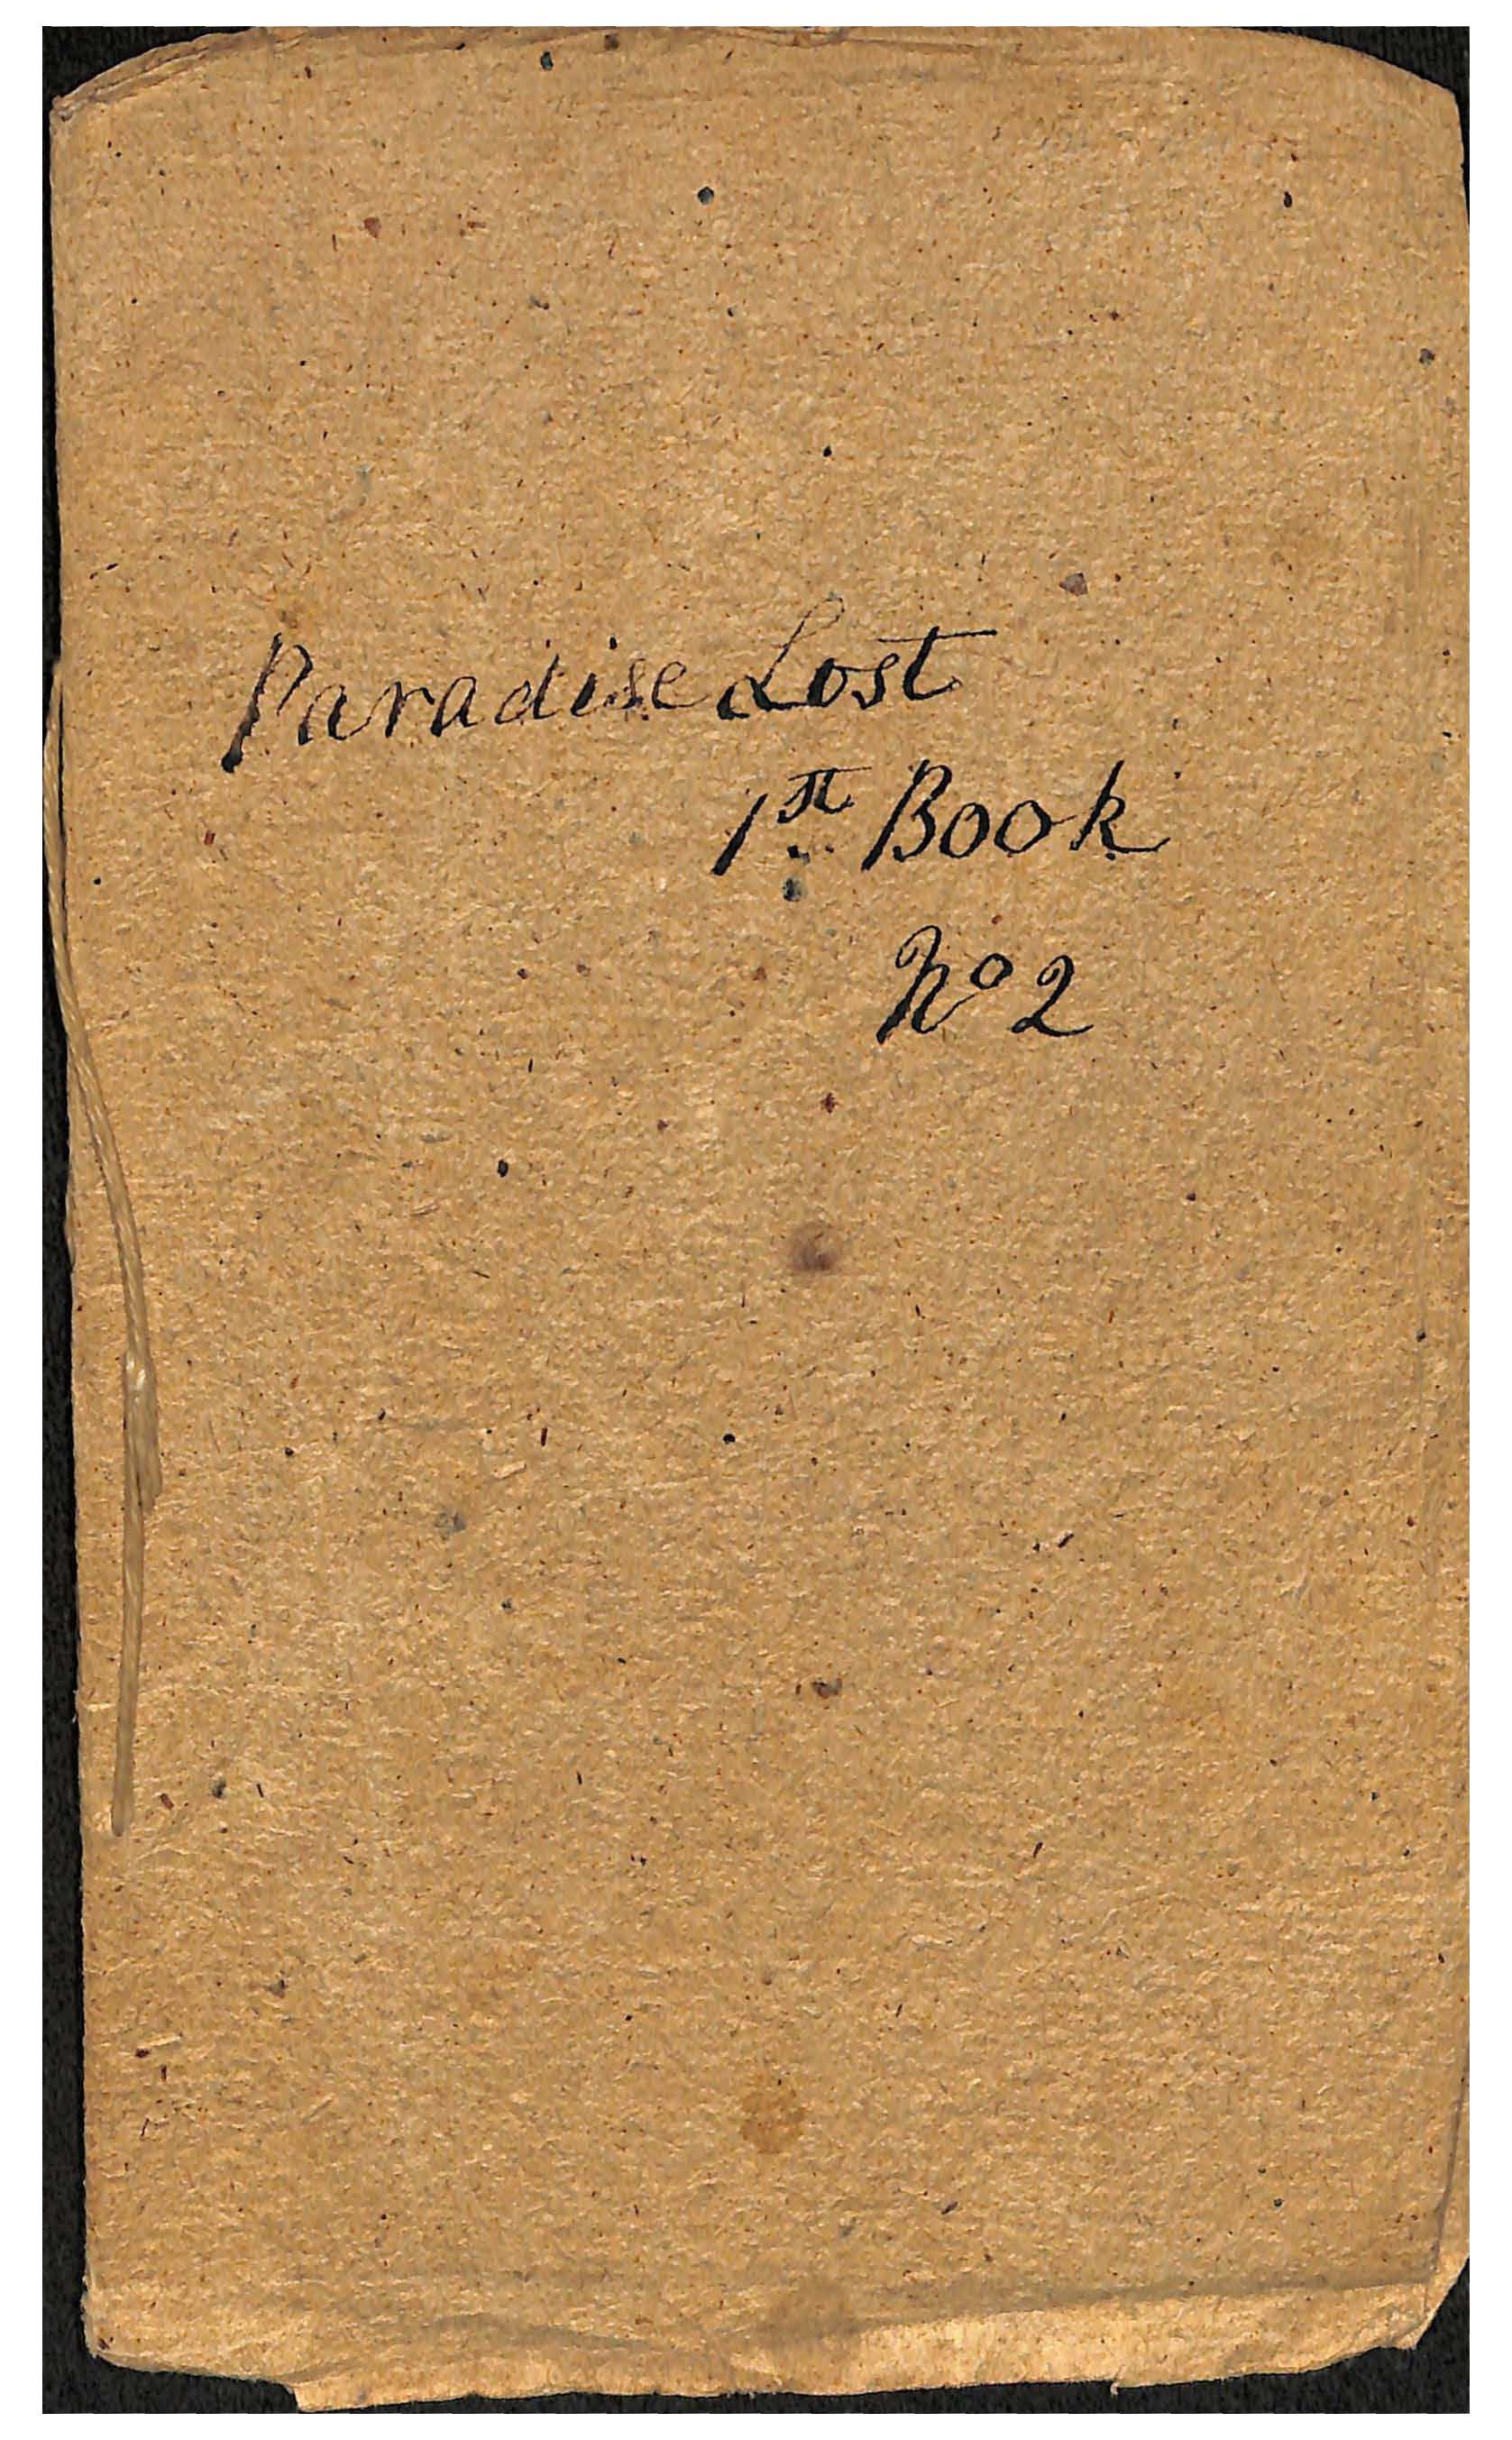 Paradise Lost
1st Book
No 2